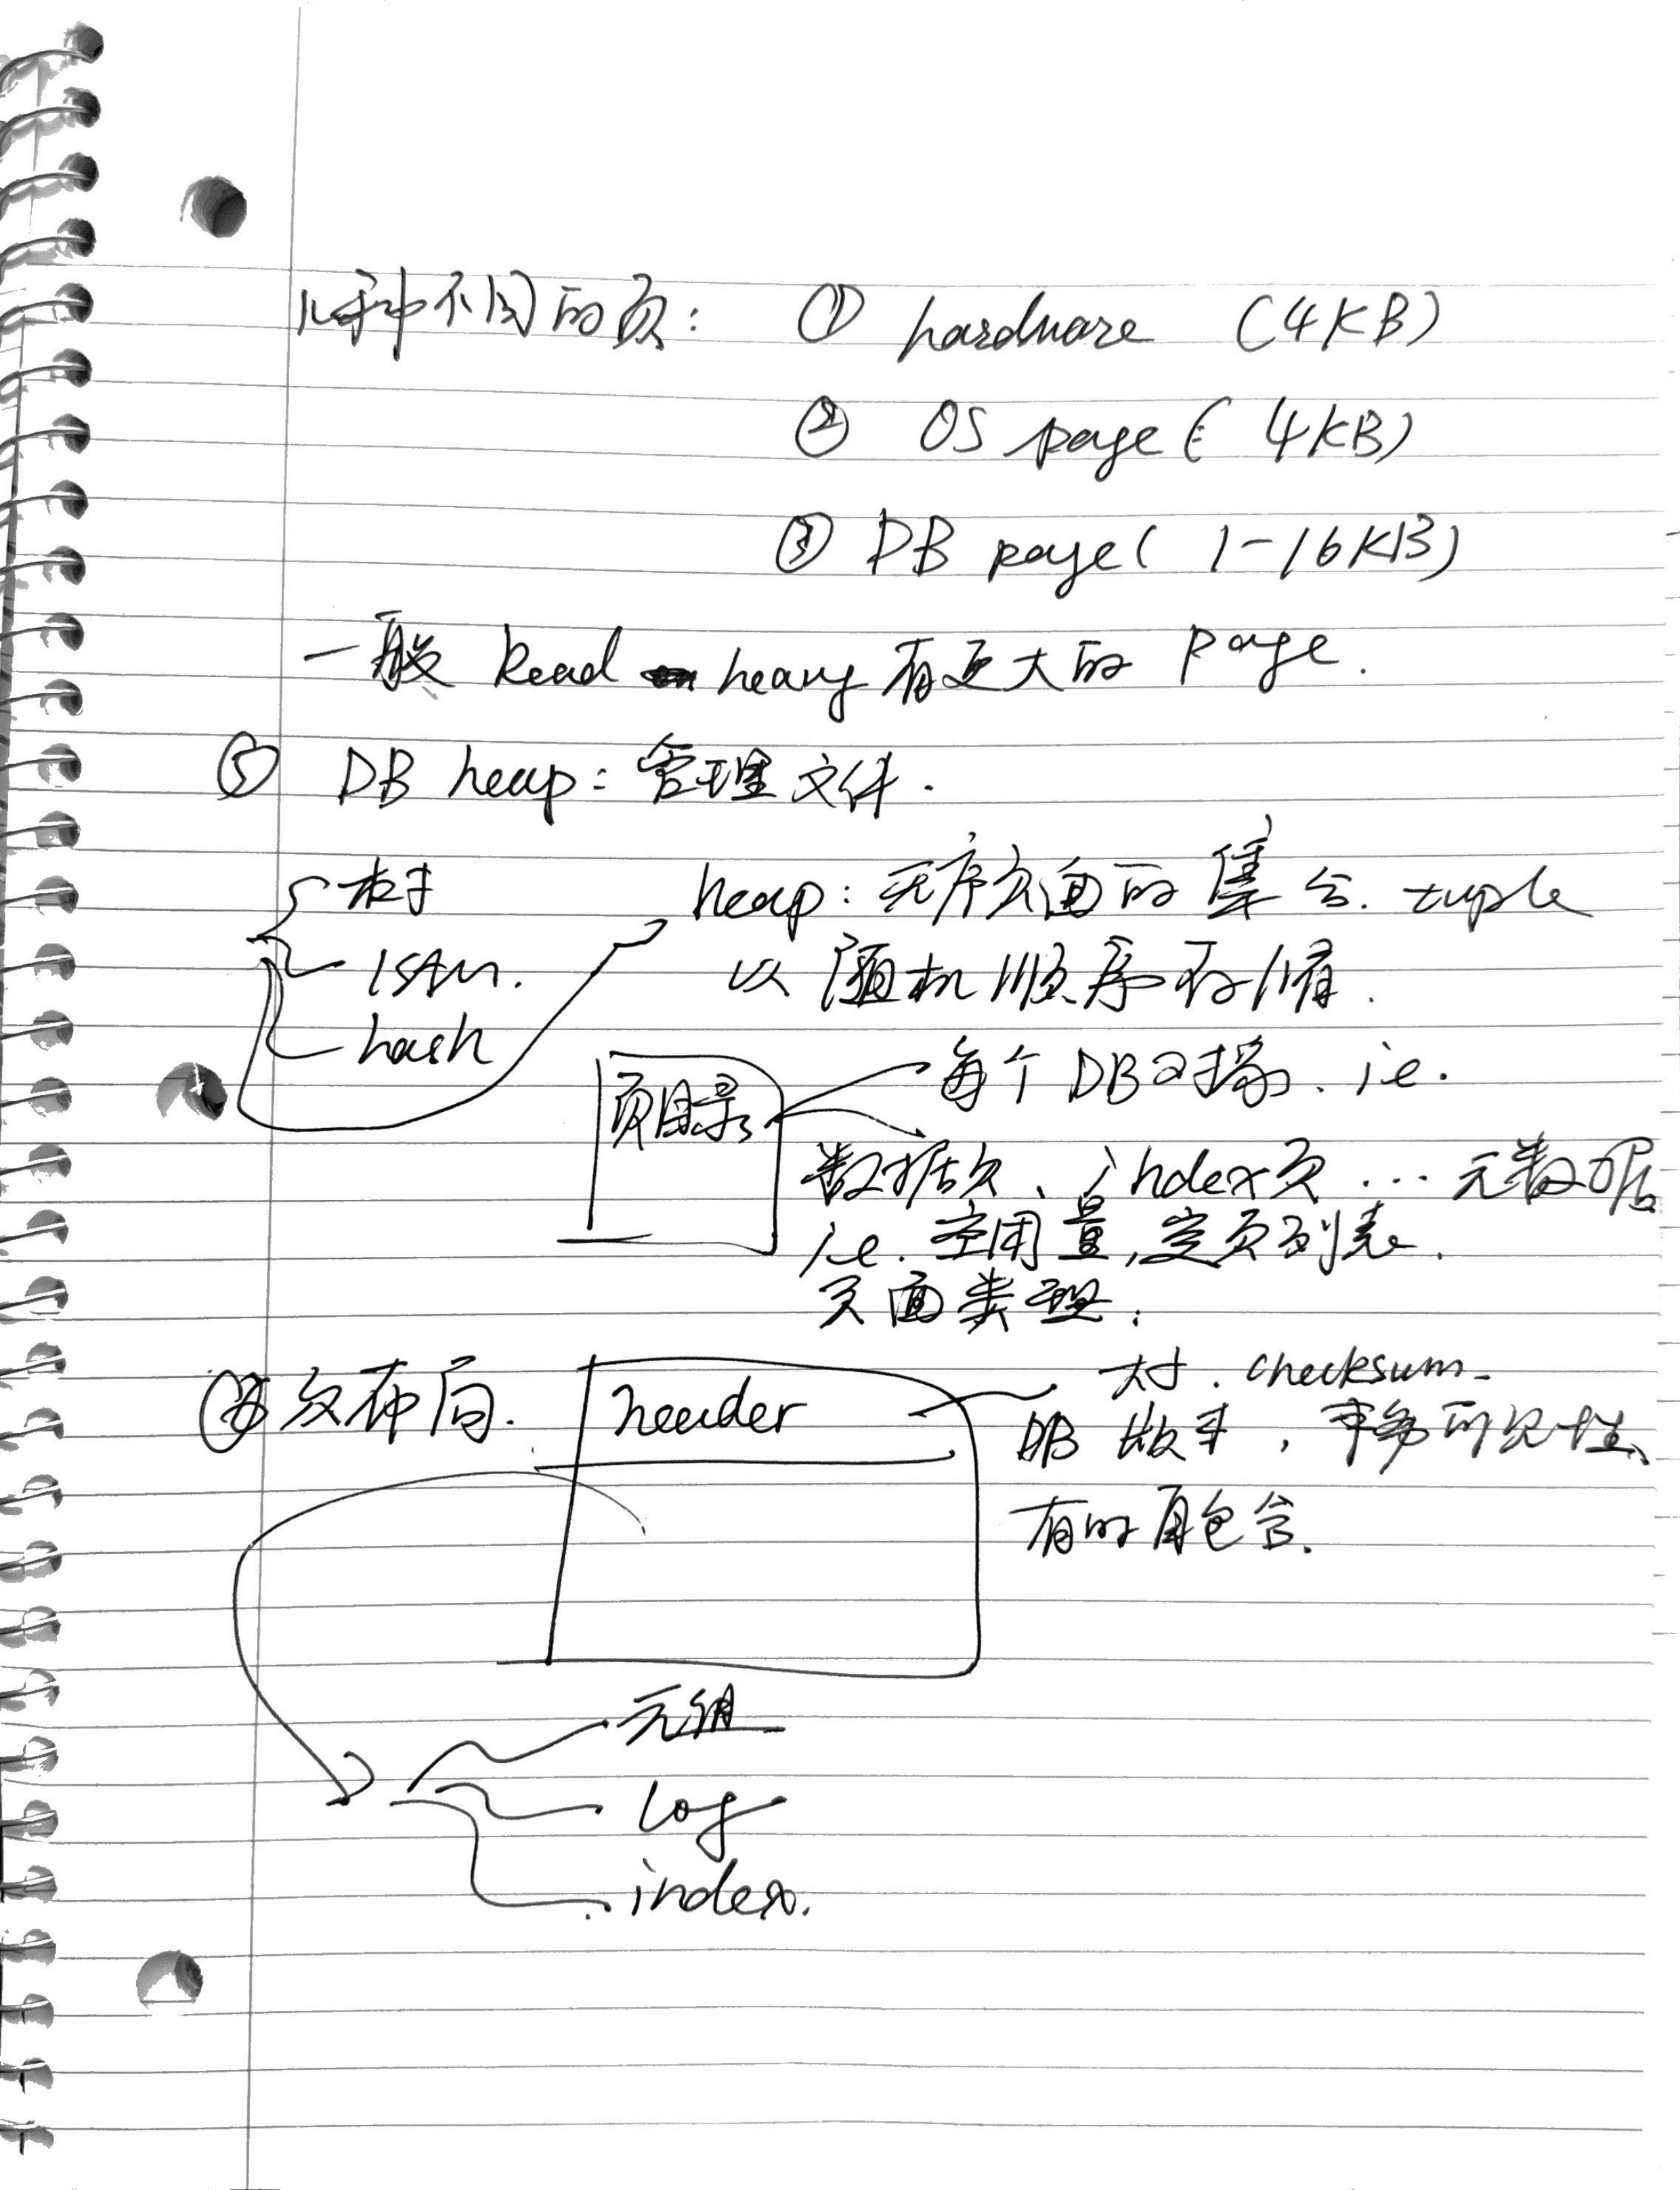 几种不同的页： ① hardware (4KB)
② OS page (4KB)
③ DB page (1-16KB)
一般 Read heavy 有更大的 page.
⑤ DB heap：管理文件.
树
ISAM.
hash
heap：无序页面的集合. tuple
以随机顺序存储.
页目录
每个 DB 对象. i.e.
数据页、index页 ... 元数据
i.e. 空闲量, 空页列表.
页面类型.
页布局.
header
大小. checksum.
DB 版本, 事务可见性、
有的自包含.
元组
log
index.